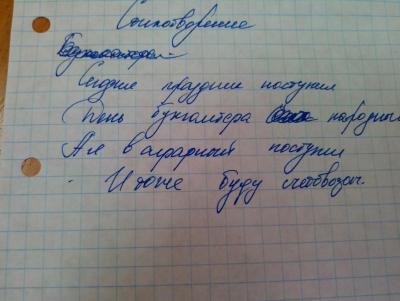 Стихотворение
Бухгалтерам
Сегодня праздник наступил
День бухгалтера народный
А я в аграрный поступил
И тоже буду счетоводом.